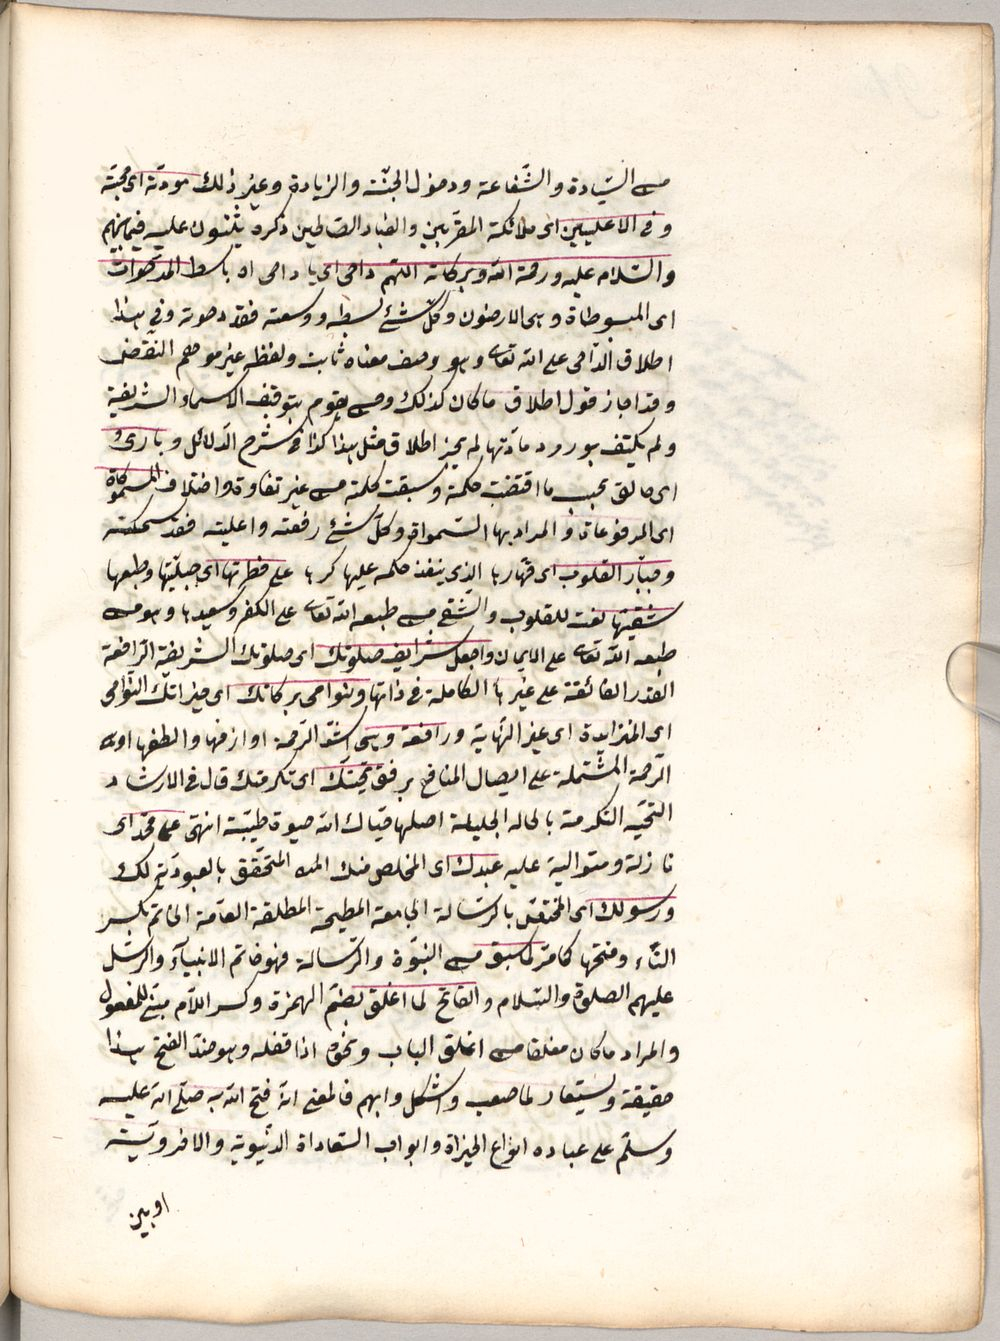 من السيادة والشفاعة ودخول الجنّة والزيادة وغير ذلك مودّته اى محبته
وفى الاعليين اى ملائكة المقرّبين والعباد الصالحين ذكره يثنون عليه فيما بينهم
والسّلام عليه ورحمة اللّه وبركاته اللّهم داحى اى يا داحى او باسط المدحوات
اى المبسوطاة وهى الارضون وكلّ شئ بسطه ووسعته فقد دحوته وفى هذا
اطلاق الدّاحى على اللّه تعالى وهو وصف معناه ثابت ولفظه غير موهم النّقص
وقد اجاز قوم اطلاق ما كان كذلك ومن يقوم بتوقيف الاسماء الشريفة
ولم يكتف بورود مادّتها لم يجيز اطلاق مثل هذا كذا فى شرح الدّلائل وبارئ
اى خالق بحيث ما اقتضت حكمة وسبقت كلمة من غير تفاوة واختلاف المسموكاة
اى المرفوعاة والمراد بها السّمواة وكلّ شئ رفعته واعليته فقد سمكته
وجبّار القلوب اى قهّارها الذى ينفذ حكمه عليها كرها على فطرتها اى جبلّيتها وطبعها
شقيّها نعت للقلوب والشقى من طبعه اللّه تعالى على الكفر وسعيدها وهو من
طبعه اللّه تعالى على الايمان واجعل شرايف صلوتك اى صلوتك الشريفة الرّافعة
القدر الفائقة على غيرها الكاملة فى ذاتها ونوامى بركاتك اى خيراتك النّوامى
اى المتزايدة اى غير النّهاية ورافعة وهى اشدّ الرّحمة او ارفها والطفها او
الرّحمة المشتملة على ايصال المنافع برفق تحيّتك اى تكرمتك قال فى الارشاد
التّحيّة التكرمة بالحالة الجليلة اصلها حيّاك اللّه حيوة طيّبة انتهى على محمّد اى
نازلة ومتوالية عليه عبدك اى المخلص منك المتحقّق بالعبوديّة لك
ورسولك اى المختصّ بالرّسالة الجامعة المطلقة العامّة الخاتم بكسر
التّاء وفتحها كما مرّ لما سبق من النبوّة والرّسالة فهو خاتم الانبيآء والرسّل
عليهم الصلوة والسّلام والفاتح لما اغلق بضمّ الهمزة وكسر اللاّم مبنىّ للمفعول
والمراد ما كان مغلقا من اغلق الباب ونحوه اذا قفله وهو ضدّ الفتح هذا
حقيقة ويستعار لما صعب واشكل وابهم فالمعنى انّه فتح اللّه به صلّى اللّه عليه
وسلّم على عباده انواع الخيراة وابواب السّعاداة الدّنيوية والاخروية
او بين